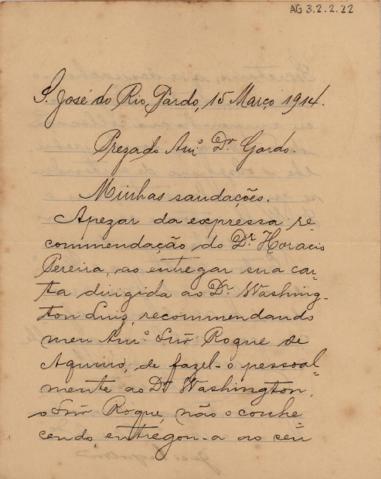 AG 3.2.2.22
S. José do Rio Pardo, 15 Março 1914.
Prezado Am.º Dr. Gordo.
Minhas saudações.
Apezar da expressa re
commendação do Dr. Horacio
Pereira, ao entregar sua car
ta dirigida ao Dr. Washing
ton Luis, recommendando
meu Am.º Snr. Roque de
Aquino, de fazel-o pessoal
mente ao Dr. Washington,
o Snr. Roque, não o conhe
cendo, entregou-a ao seu